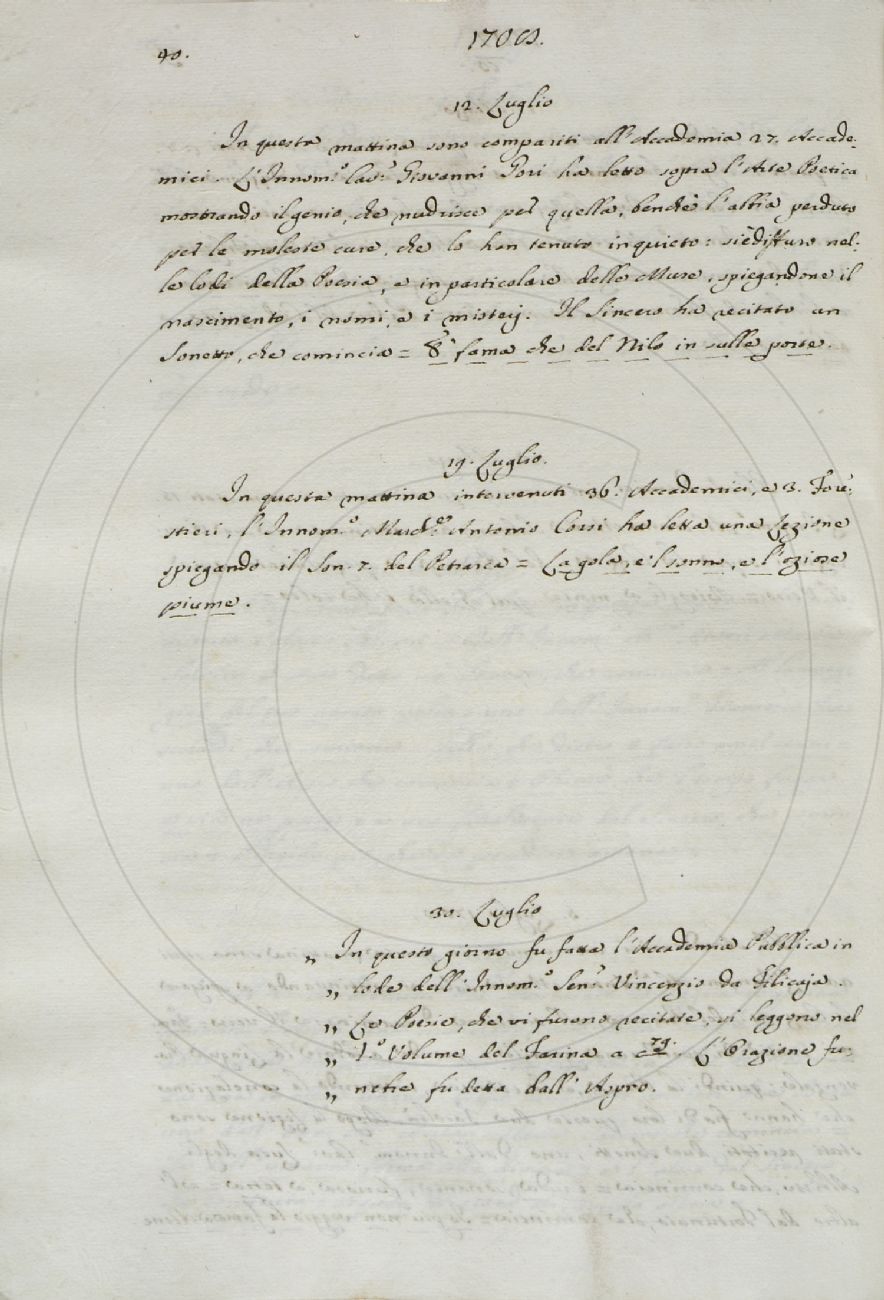 40.
1708.
12. Luglio
In questa mattina sono compariti all'Accademia 27. Accade:
mici. L'Innom.º Cav.r Giovanni Gori ha letto sopra l'Arte Poetica
mostrando il genio, che nudrisce per quella, benchè l'abbia perduto
per le moleste cure, che lo han tenuto inquieto: si è diffuso nel:
le lodi della Poesia, e in particolare delle Muse, spiegandone il
nascimento, i nomi, e i misterj. Il Sincero ha recitato un
Sonetto, che comincia = È fama che del Nilo in sulle porte.
19. Luglio.
In questa mattina intervenuti 36. Accademici, e 3. Fore:
stieri, l'Innom.º March.e Antonio Corsi ha letta una Lezione
spiegando il Son. 7. del Petrarca = La gola, e 'l sonno, e l'oziose
piume.
30. Luglio
„ In questo giorno fu fatta l'Accademia Pubblica in
„ lode dell'Innom.º Sen.r Vincenzio da Filicaja.
„ Le Poesie, che vi furono recitate, si leggono nel
„ 1.º Volume del Farina a c. 79. L'Orazione fu:
„ nebre fu detta dall'Aspro.